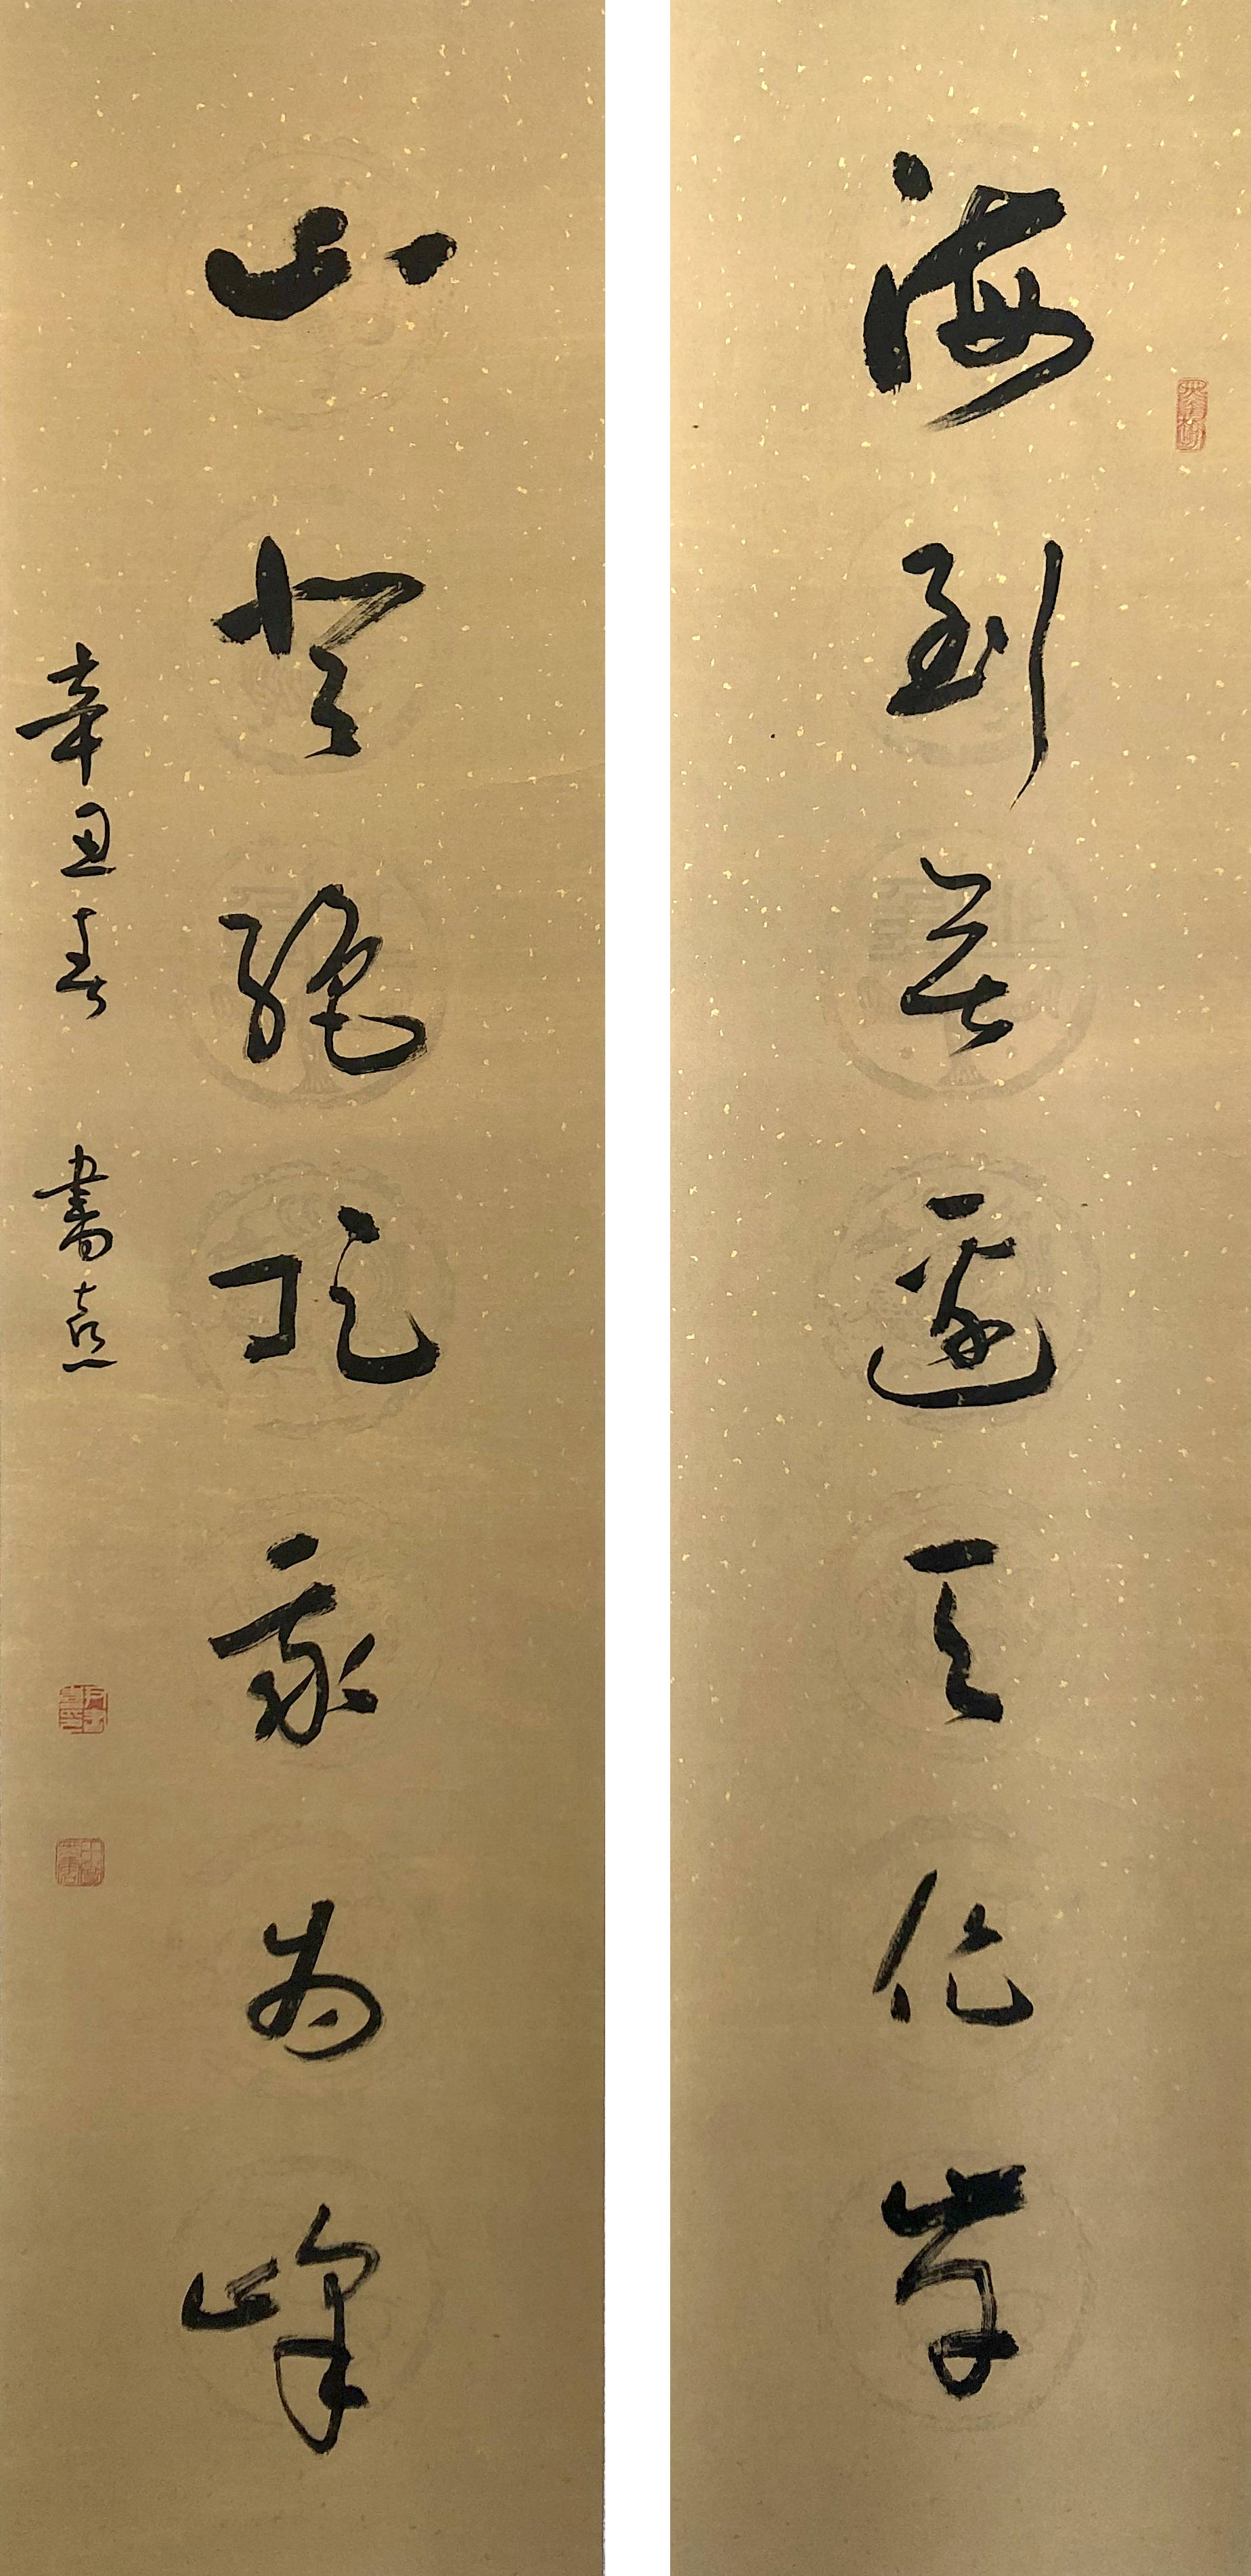 海到無邊天作岸
山登絕頂我為峰
辛丑春 書熹